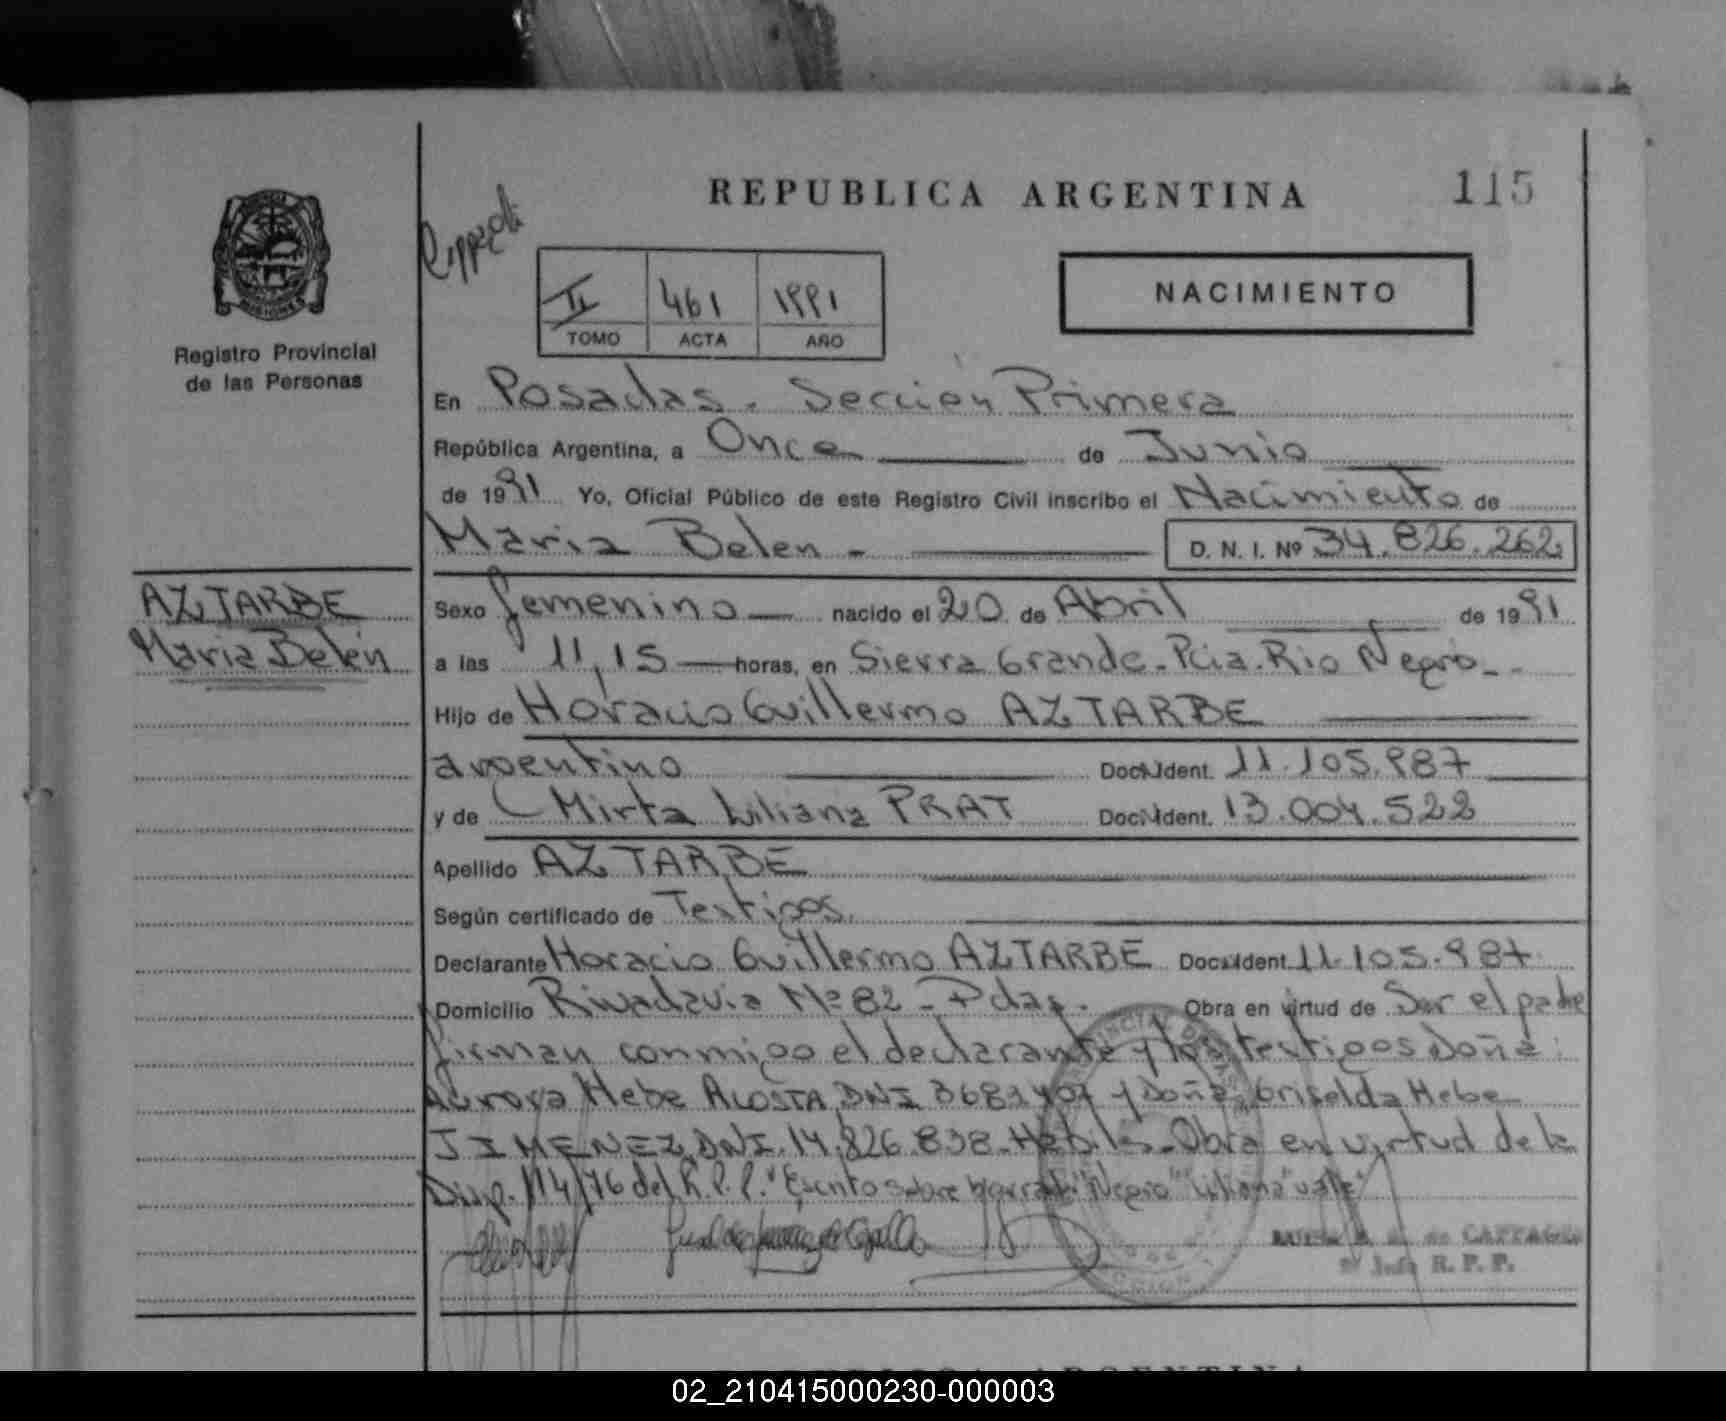 REPUBLICA ARGENTINA
115
MISIONES
Registro Provincial
de las Personas
II 461 1991
TOMO ACTA AÑO
NACIMIENTO
En Posadas. Sección Primera
República Argentina, a Once de Junio
de 1991 Yo, Oficial Público de este Registro Civil inscribo el Nacimiento de
Maria Belen - D. N. I. Nº 34.826.262
AZTARBE
Maria Belén
Sexo femenino nacido el 20 de Abril de 1991
a las 11,15 horas, en Sierra Grande. Pcia. Rio Negro--
Hijo de Horacio Guillermo AZTARBE
argentino Doc. Ident. 11.105.987
y de Mirta Liliana PRAT Doc. Ident. 13.004.522
Apellido AZTARBE
Según certificado de Testigos.
Declarante Horacio Guillermo AZTARBE Doc. Ident. 11.105.987.
Domicilio Rivadavia Nº 82 - Pdas. Obra en virtud de Ser el padre
firman conmigo el declarante y los testigos Doña:
Aurora Hebe ACOSTA, DNI y Doña Griselda Hebe
JIMENEZ, DNI. 14.826.838. Habiles. Obra en virtud de la
Disp. 114/76 del R.P.P. "Escrito sobre borrado: "Negro" "Liliana" vale.
de
Jefe R. P. P.
REPUBLICA ARGENTINA
02_210415000230-000003